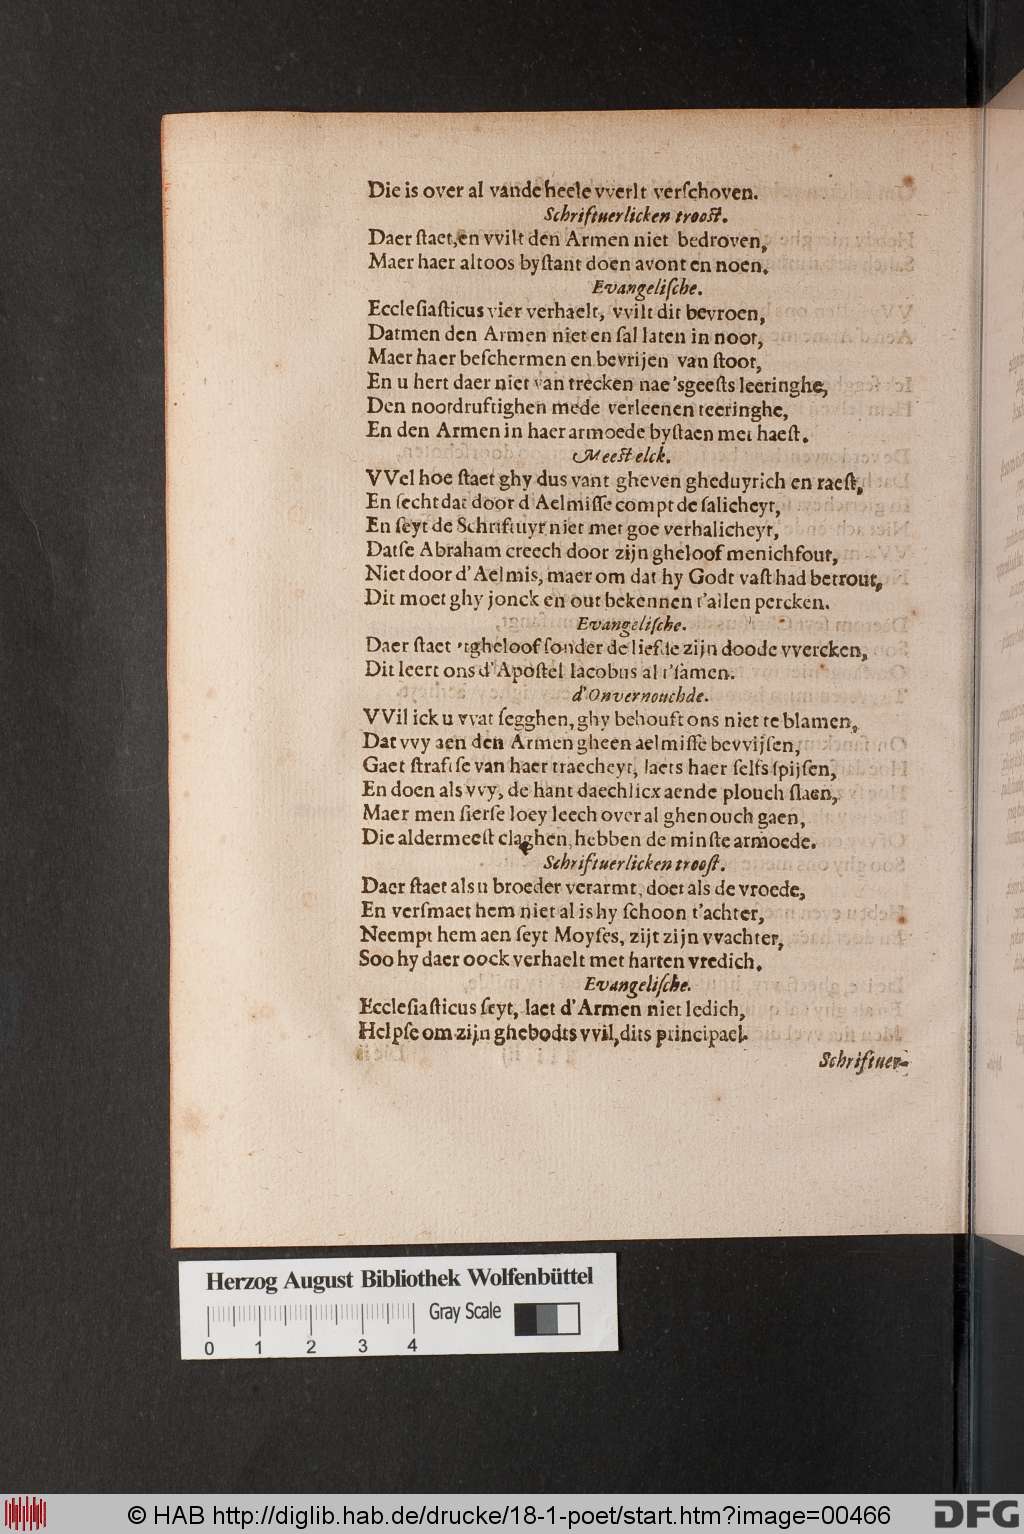 Die is over al vande heele vverlt verſchoven.
Schriftuerlicken trooſt.
Daer ſtaet, en vvilt den Armen niet bedroven,
Maer haer altoos byſtant doen avont en noen.
Evangeliſche.
Eccleſiaſticus vier verhaelt, vvilt dit bevroen,
Datmen den Armen niet en ſal laten in noot,
Maer haer beſchermen en bevrijen van ſtoot,
En u hert daer niet van trecken nae 'sgeeſts leeringhe,
Den nootdruftighen mede verleenen teeringhe,
En den Armen in haer armoede byſtaen met haeſt.
Meeſt elck.
VVel hoe ſtaet ghy dus vant gheven gheduyrich en raeſt,
En ſecht dat door d'Aelmiſſe compt de ſalicheyt,
En ſeyt de Schriftuyr niet met goe verhalicheyt,
Datſe Abraham creech door zijn gheloof menichfout,
Niet door d'Aelmis, maer om dat hy Godt vaſt had betrout,
Dit moet ghy jonck en out bekennen t'allen percken.
Evangeliſche.
Daer ſtaet 'tgheloof ſonder de liefde zijn doode vvercken,
Dit leert ons d'Apoſtel Iacobus al t'ſamen.
d'Onvernouchde.
VVil ick u vvat ſegghen, ghy behouft ons niet te blamen,
Dat vvy aen den Armen gheen aelmiſſe bevvijſen,
Gaet ſtraft ſe van haer traecheyt, laets haer ſelfs ſpijſen,
En doen als vvy, de hant daechlicx aende plouch ſlaen,
Maer men ſierſe loey leech over al ghenouch gaen,
Die aldermeeſt claghen, hebben de minſte armoede.
Schriftuerlicken trooſt.
Daer ſtaet als u broeder verarmt, doet als de vroede,
En verſmaet hem niet al is hy ſchoon t'achter,
Neempt hem aen ſeyt Moyſes, zijt zijn vvachter,
Soo hy daer oock verhaelt met harten vredich.
Evangeliſche.
Eccleſiaſticus ſeyt, laet d'Armen niet ledich,
Helpſe om zijn ghebodts vvil, dits principael.
Schriftuer-
Herzog August Bibliothek Wolfenbüttel
Gray Scale
0 1 2 3 4
© HAB http://diglib.hab.de/drucke/18-1-poet/start.htm?image=00466
DFG